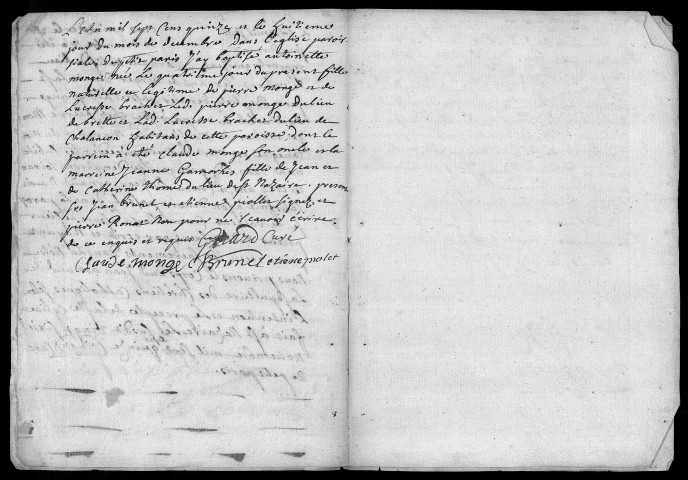 L'an mil sept cens quinze et le huitieme
jour du mois de decembre dans l'eglise parois
siale du petit paris j'ay baptisé antoinette
monge née le quatrième jour du present fille
naturelle et legitime de pierre monge et de
Lucresse brachet led. pierre monge du lieu
de brette et lad. Lucresse brachet du lieu de
Chalancon habitans de cette paroisse dont le
parrein a été claude monge son oncle et la
marreine jeanne Gamortes fille de jean et
de Catherine thome du lieu de st Nazaire presen
jean brunet et etienne piollet signez et
pierre Ronat non pour ne sçavoir écrire
de ce enquis et requis Curé
Claude monge Brunel etiene piolet